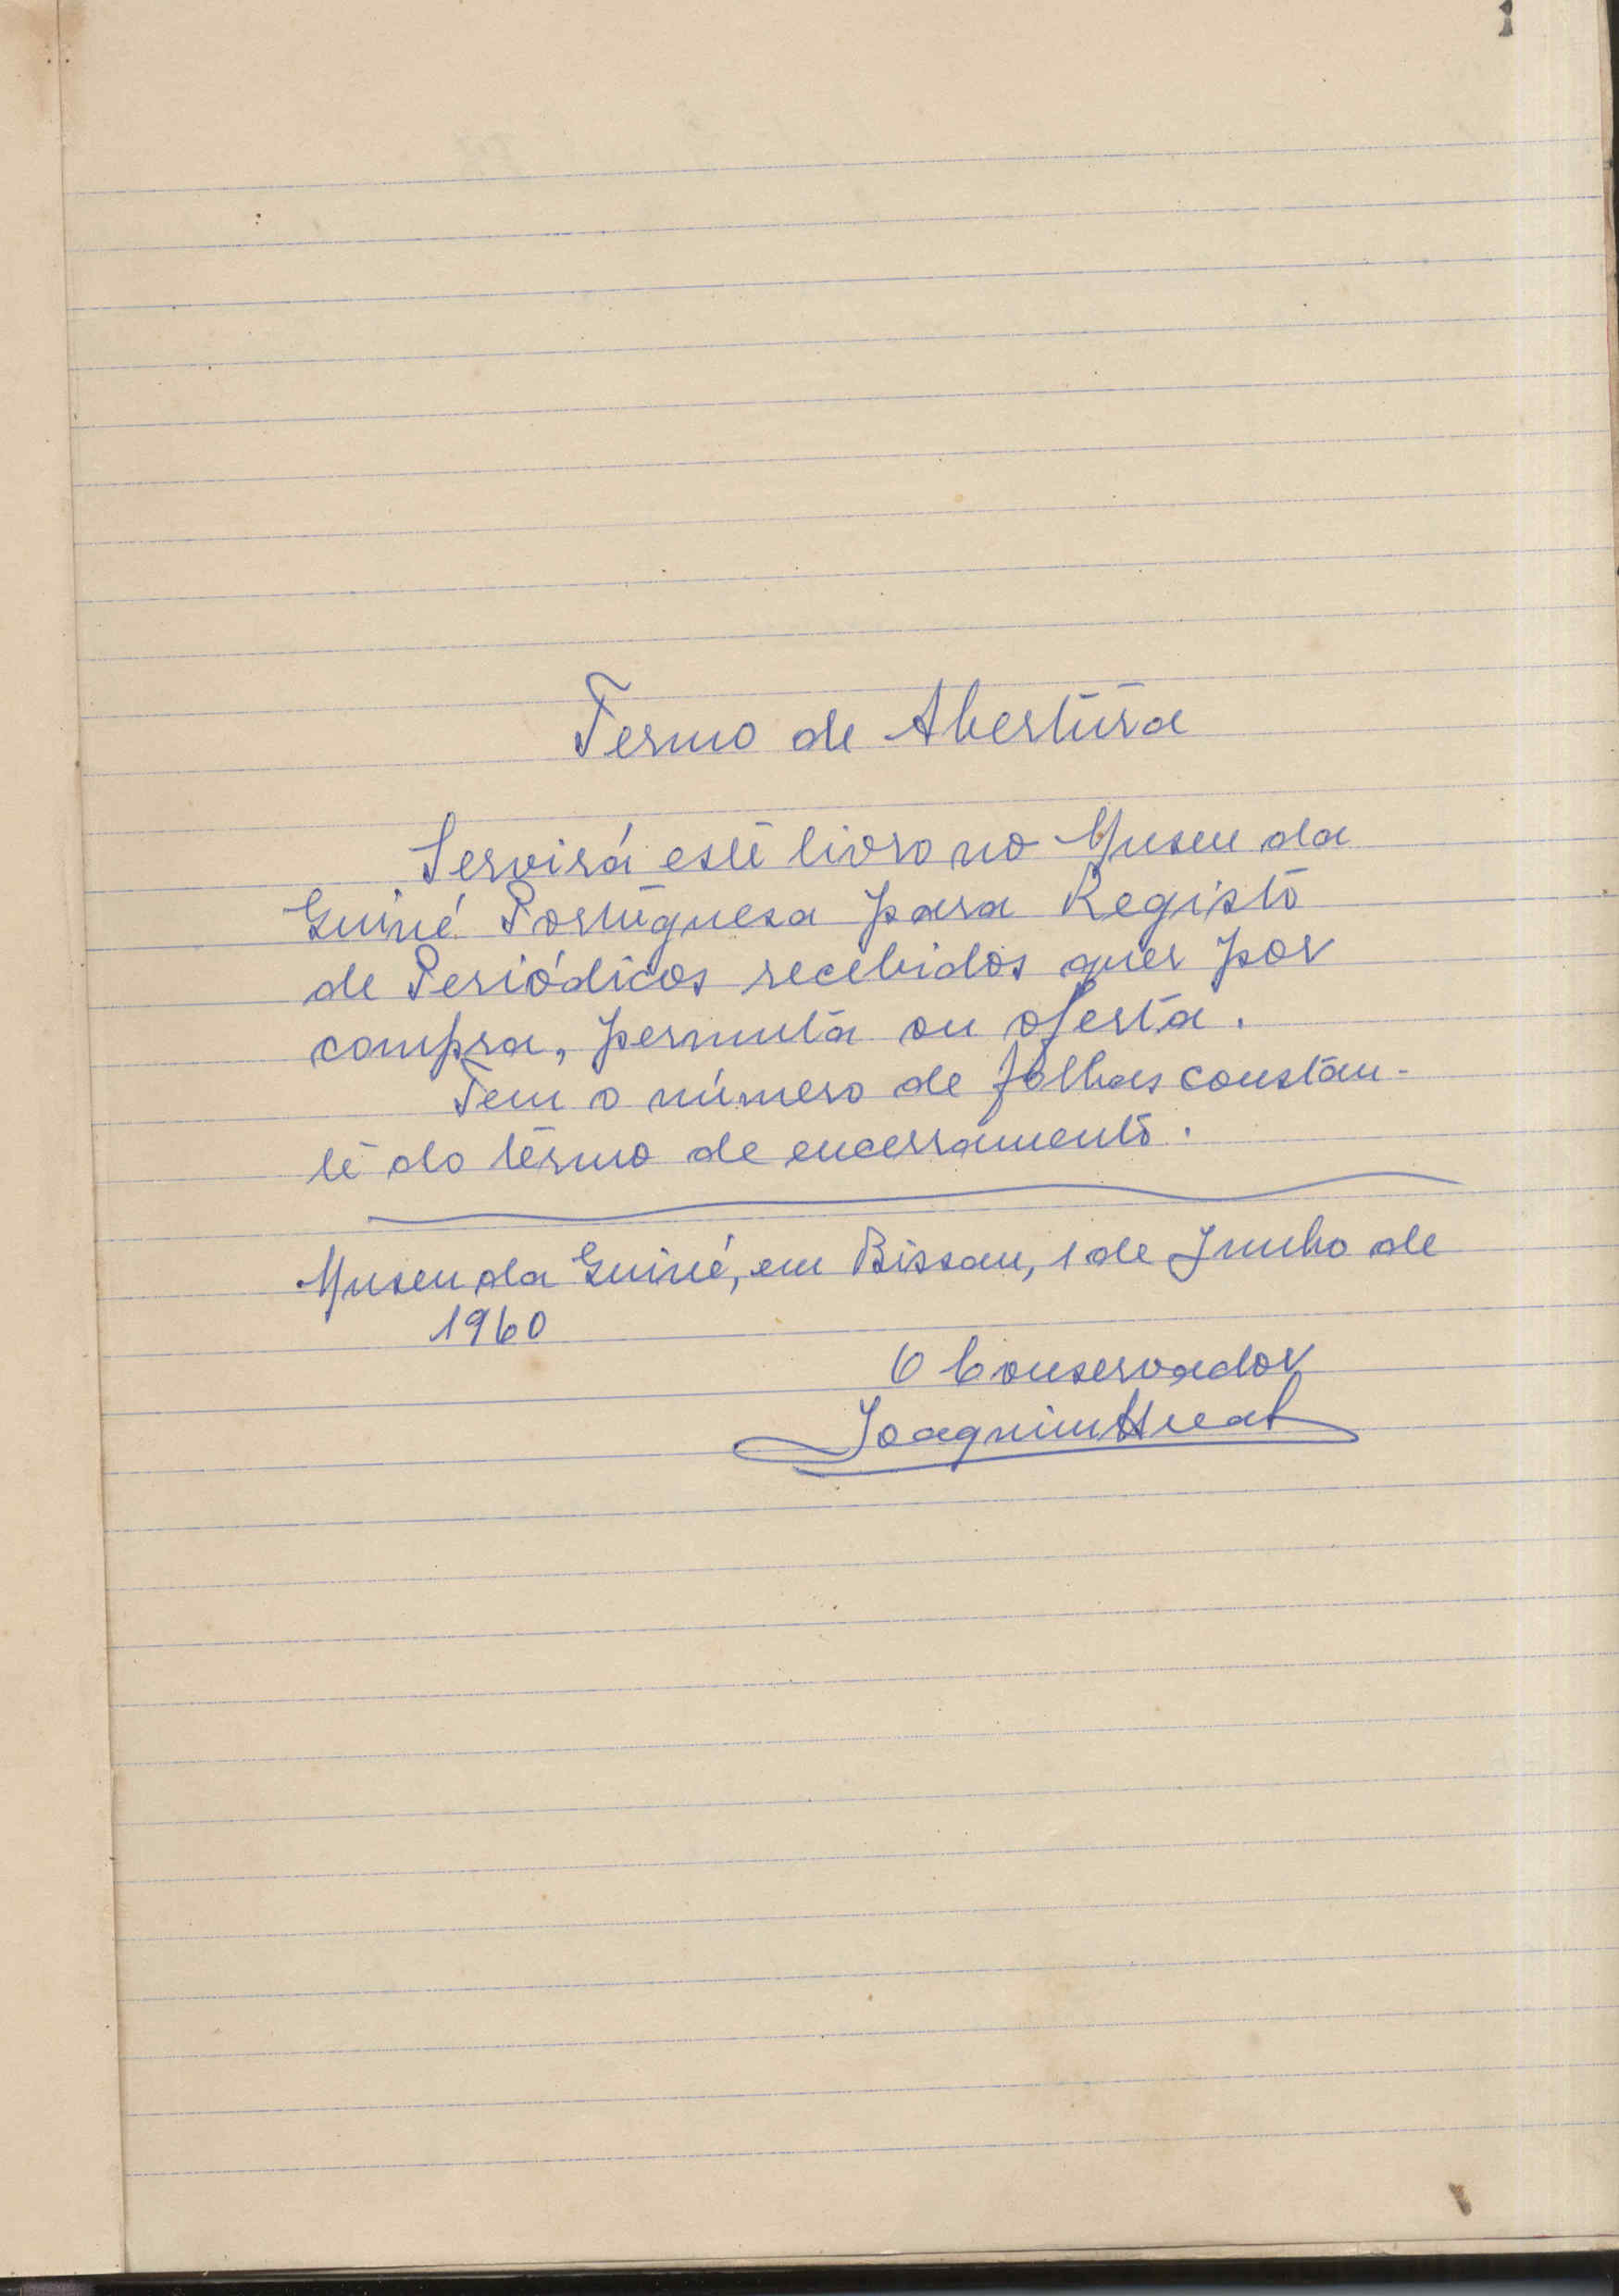 1
Termo de Abertura
Servirá este livro no Museu da
Guiné Portuguesa para Registo
de Periódicos recebidos quer por
compra, permuta ou oferta.
Tem o número de folhas constan-
te do termo de encerramento.
Museu da Guiné, em Bissau, 1 de Junho de
1960
O Conservador
Joaquim